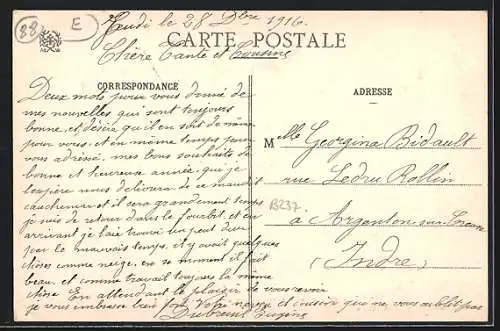 88
E
Jeudi le 28 Dbre 1916.
Chère Tante et Cousine
CARTE POSTALE
CORRESPONDANCE
ADRESSE
Deux mots pour vous donné de
mes nouvelles qui sont toujours
bonne, et désire qu'il en soit de même
pour vous, et en même temps je
vous adresse, mes bons souhaits de
bonne et heureuse année, qui je
l'espère nous delivera de ce maudit
cauchemar et il sera grandement temps
je suis de retour dans le fourbi, et en
arrivant je l'aie trouvé un peut dur
par le mauvais temps, il y avait quelques
choses comme neige, en ce moment il fait
beau, et comme travail toujours la même
chose En attendant le plaisir de vous revoir
je vous embrasse bien fort Votre neveu et cousin que ne vous oublit pas
Dubreuil Eugène
Mlle Georgina Bidault
rue Ledru Rollin
B237
à Argenton-sur-Creuse
(Indre)